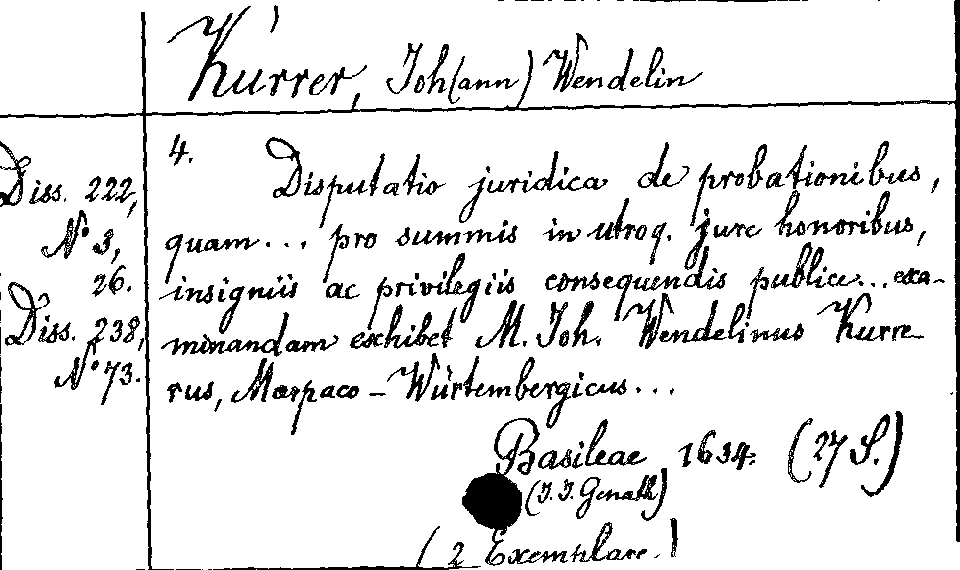 Kurrer, Joh(ann) Wendelin
Diss. 222,
N° 3,
26.
Diss. 238,
N° 73.
4. Disputatio juridica de probationibus,
quam... pro summis in utroq. jure honoribus,
insigniis ac privilegiis consequendis publice... exa-
minandam exhibet M. Joh. Wendelinus Kurre-
rus, Marpaco-Würtembergicus...
Basileae 1634. (27 S.)
(J. J. Genath)
(2 Exemplare.)